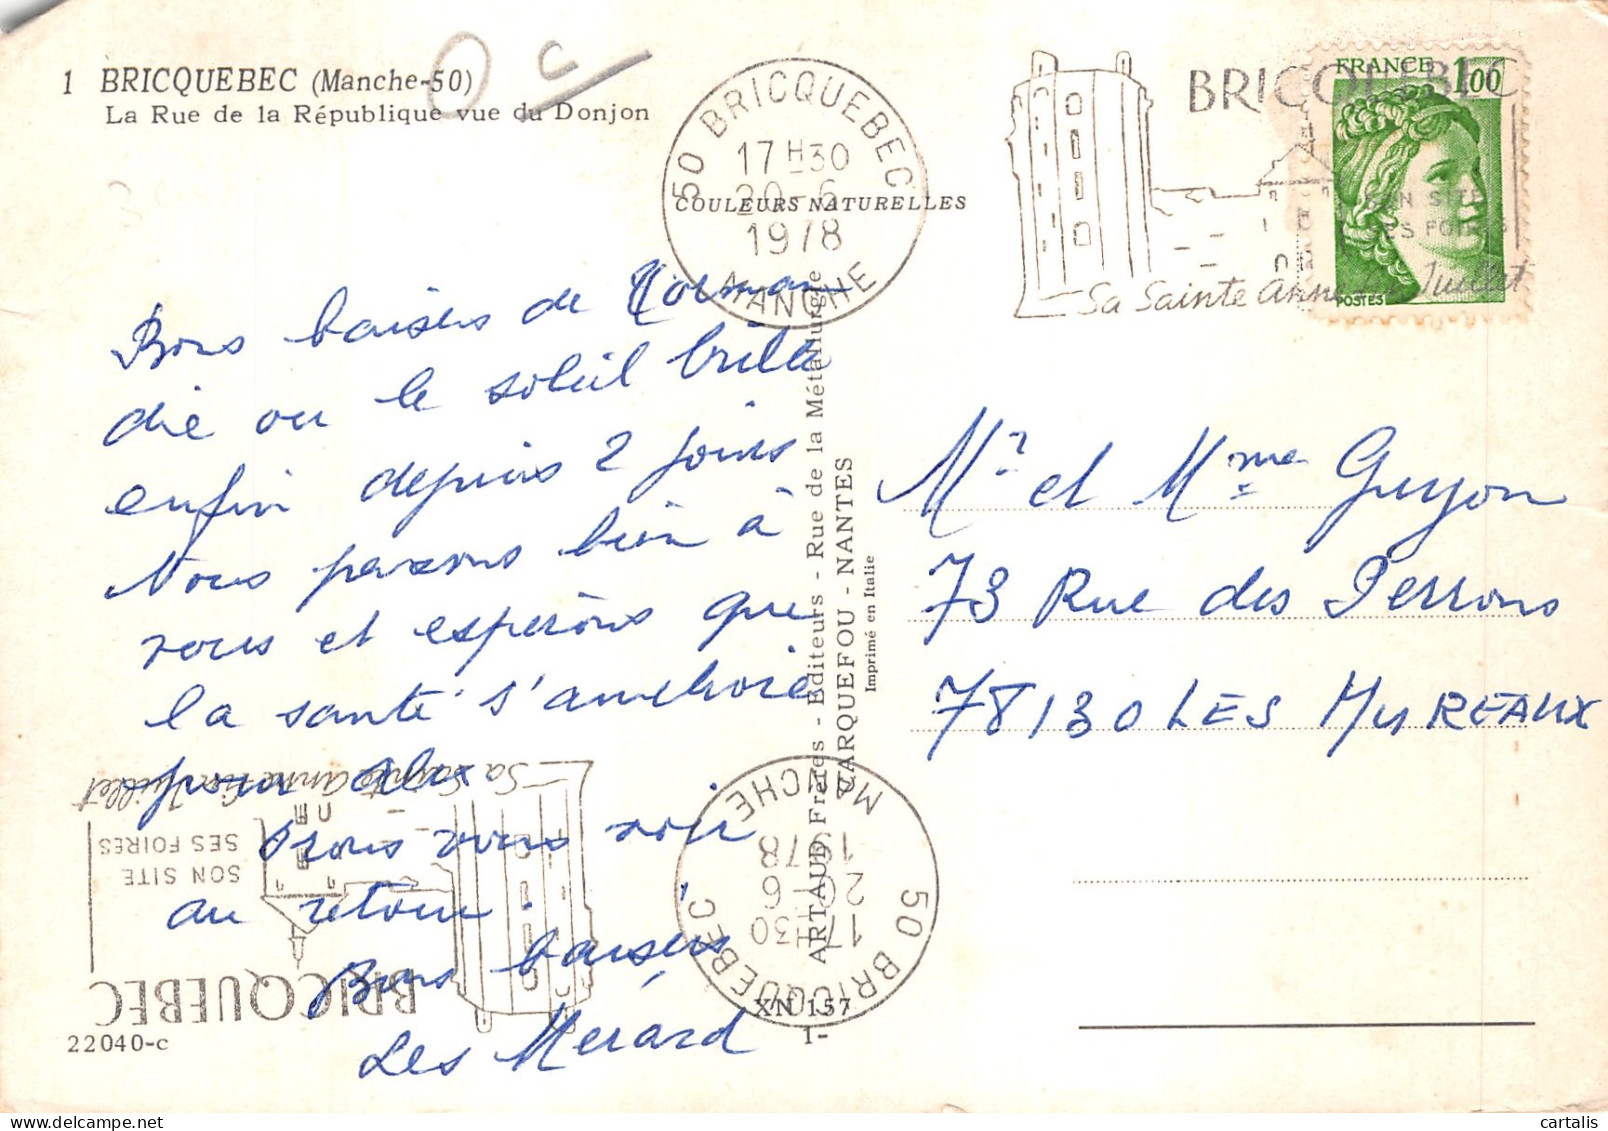 1 BRICQUEBEC (Manche-50)
La Rue de la République vue du Donjon
50 BRICQUEBEC
17 H 30
20 - 6
1978
MANCHE
COULEURS NATURELLES
BRICQUEBEC
SON SITE
SES FOIRES
Sa Sainte Anne fin Juillet
FRANCE 1,00
POSTES
Bons baisers de Norman
die ou le soleil brille
enfin depuis 2 jours
Nous pensons bien à
vous et espérons que
la santé s'améliore
pour
vous voir
au retour.
Bons baisers
Les Merard
Mr et Mme Guyon
73 Rue des Perrons
78130 LES MUREAUX
ARTAUD Frères - Editeurs - Rue de la Métallurgie
CARQUEFOU - NANTES
Imprimé en Italie
Sa Sainte Anne fin Juillet
SES FOIRES
SON SITE
BRICQUEBEC
MANCHE
1978
20 6
17 H 30
50 BRICQUEBEC
XN 157
1-
22040-c
cartalis